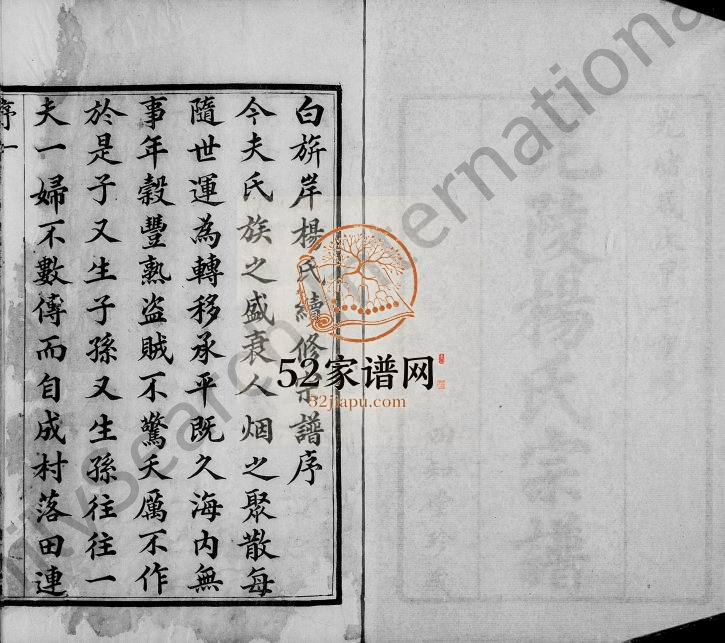 白旂岸楊氏續修宗譜序
今夫氏族之盛衰人烟之聚散每
隨世運為轉移承平既久海内無
事年穀豐熟盗賊不驚夭厲不作
於是子又生子孫又生孫往往一
夫一婦不數傳而自成村落田連
序一
52家谱网
52jiapu.com
陵楊氏宗譜
FamilySearch International